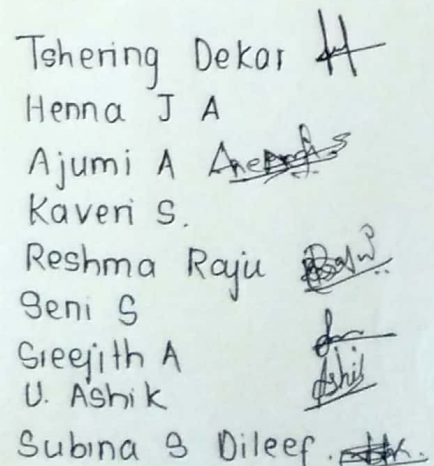 Tshering Dekar
Henna J A
Ajumi A
Kaveri S.
Reshma Raju
Seni S
Sreejith A
U. Ashik Ashik
Subina S Dileef.